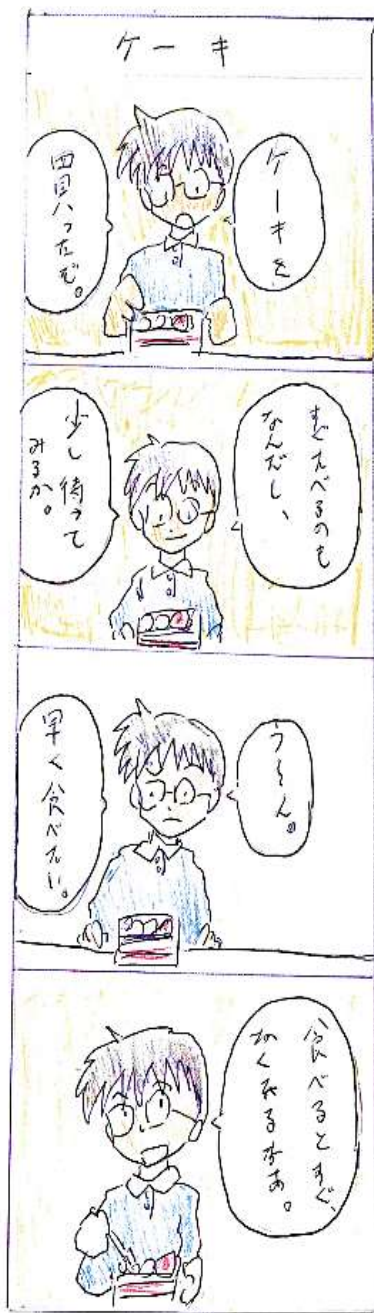 ケーキ
ケーキを
買ったぞ。
すぐ食べるのも
なんだし、
少し待って
みるか。
う〜ん。
早く食べたい。
食べるとすぐ、
なくなるなあ。